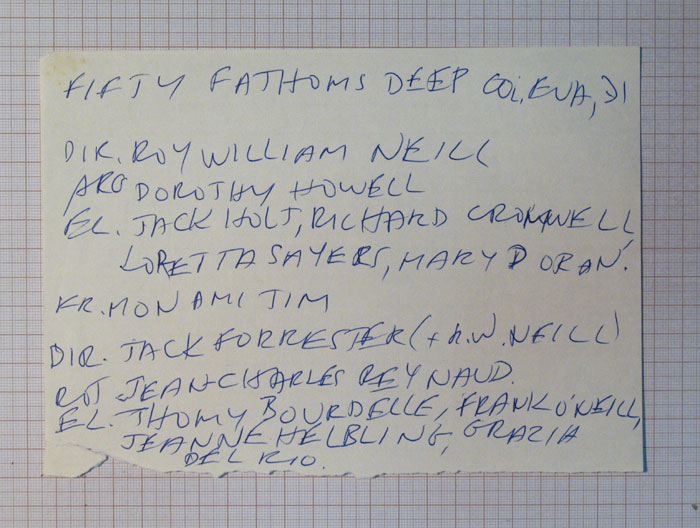 FIFTY FATHOMS DEEP COL, EUA, 31
DIR. ROY WILLIAM NEILL
ARG DOROTHY HOWELL
EL. JACK HOLT, RICHARD CROMWELL,
LORETTA SAYERS, MARY DORAN.
FR. MON AMI JIM
DIR. JACK FORRESTER (+ R.W. NEILL)
JEAN-CHARLES REYNAUD.
EL. THOMY BOURDELLE, FRANK O'NEILL,
JEANNE HELBLING, GRAZIA
DEL RIO.